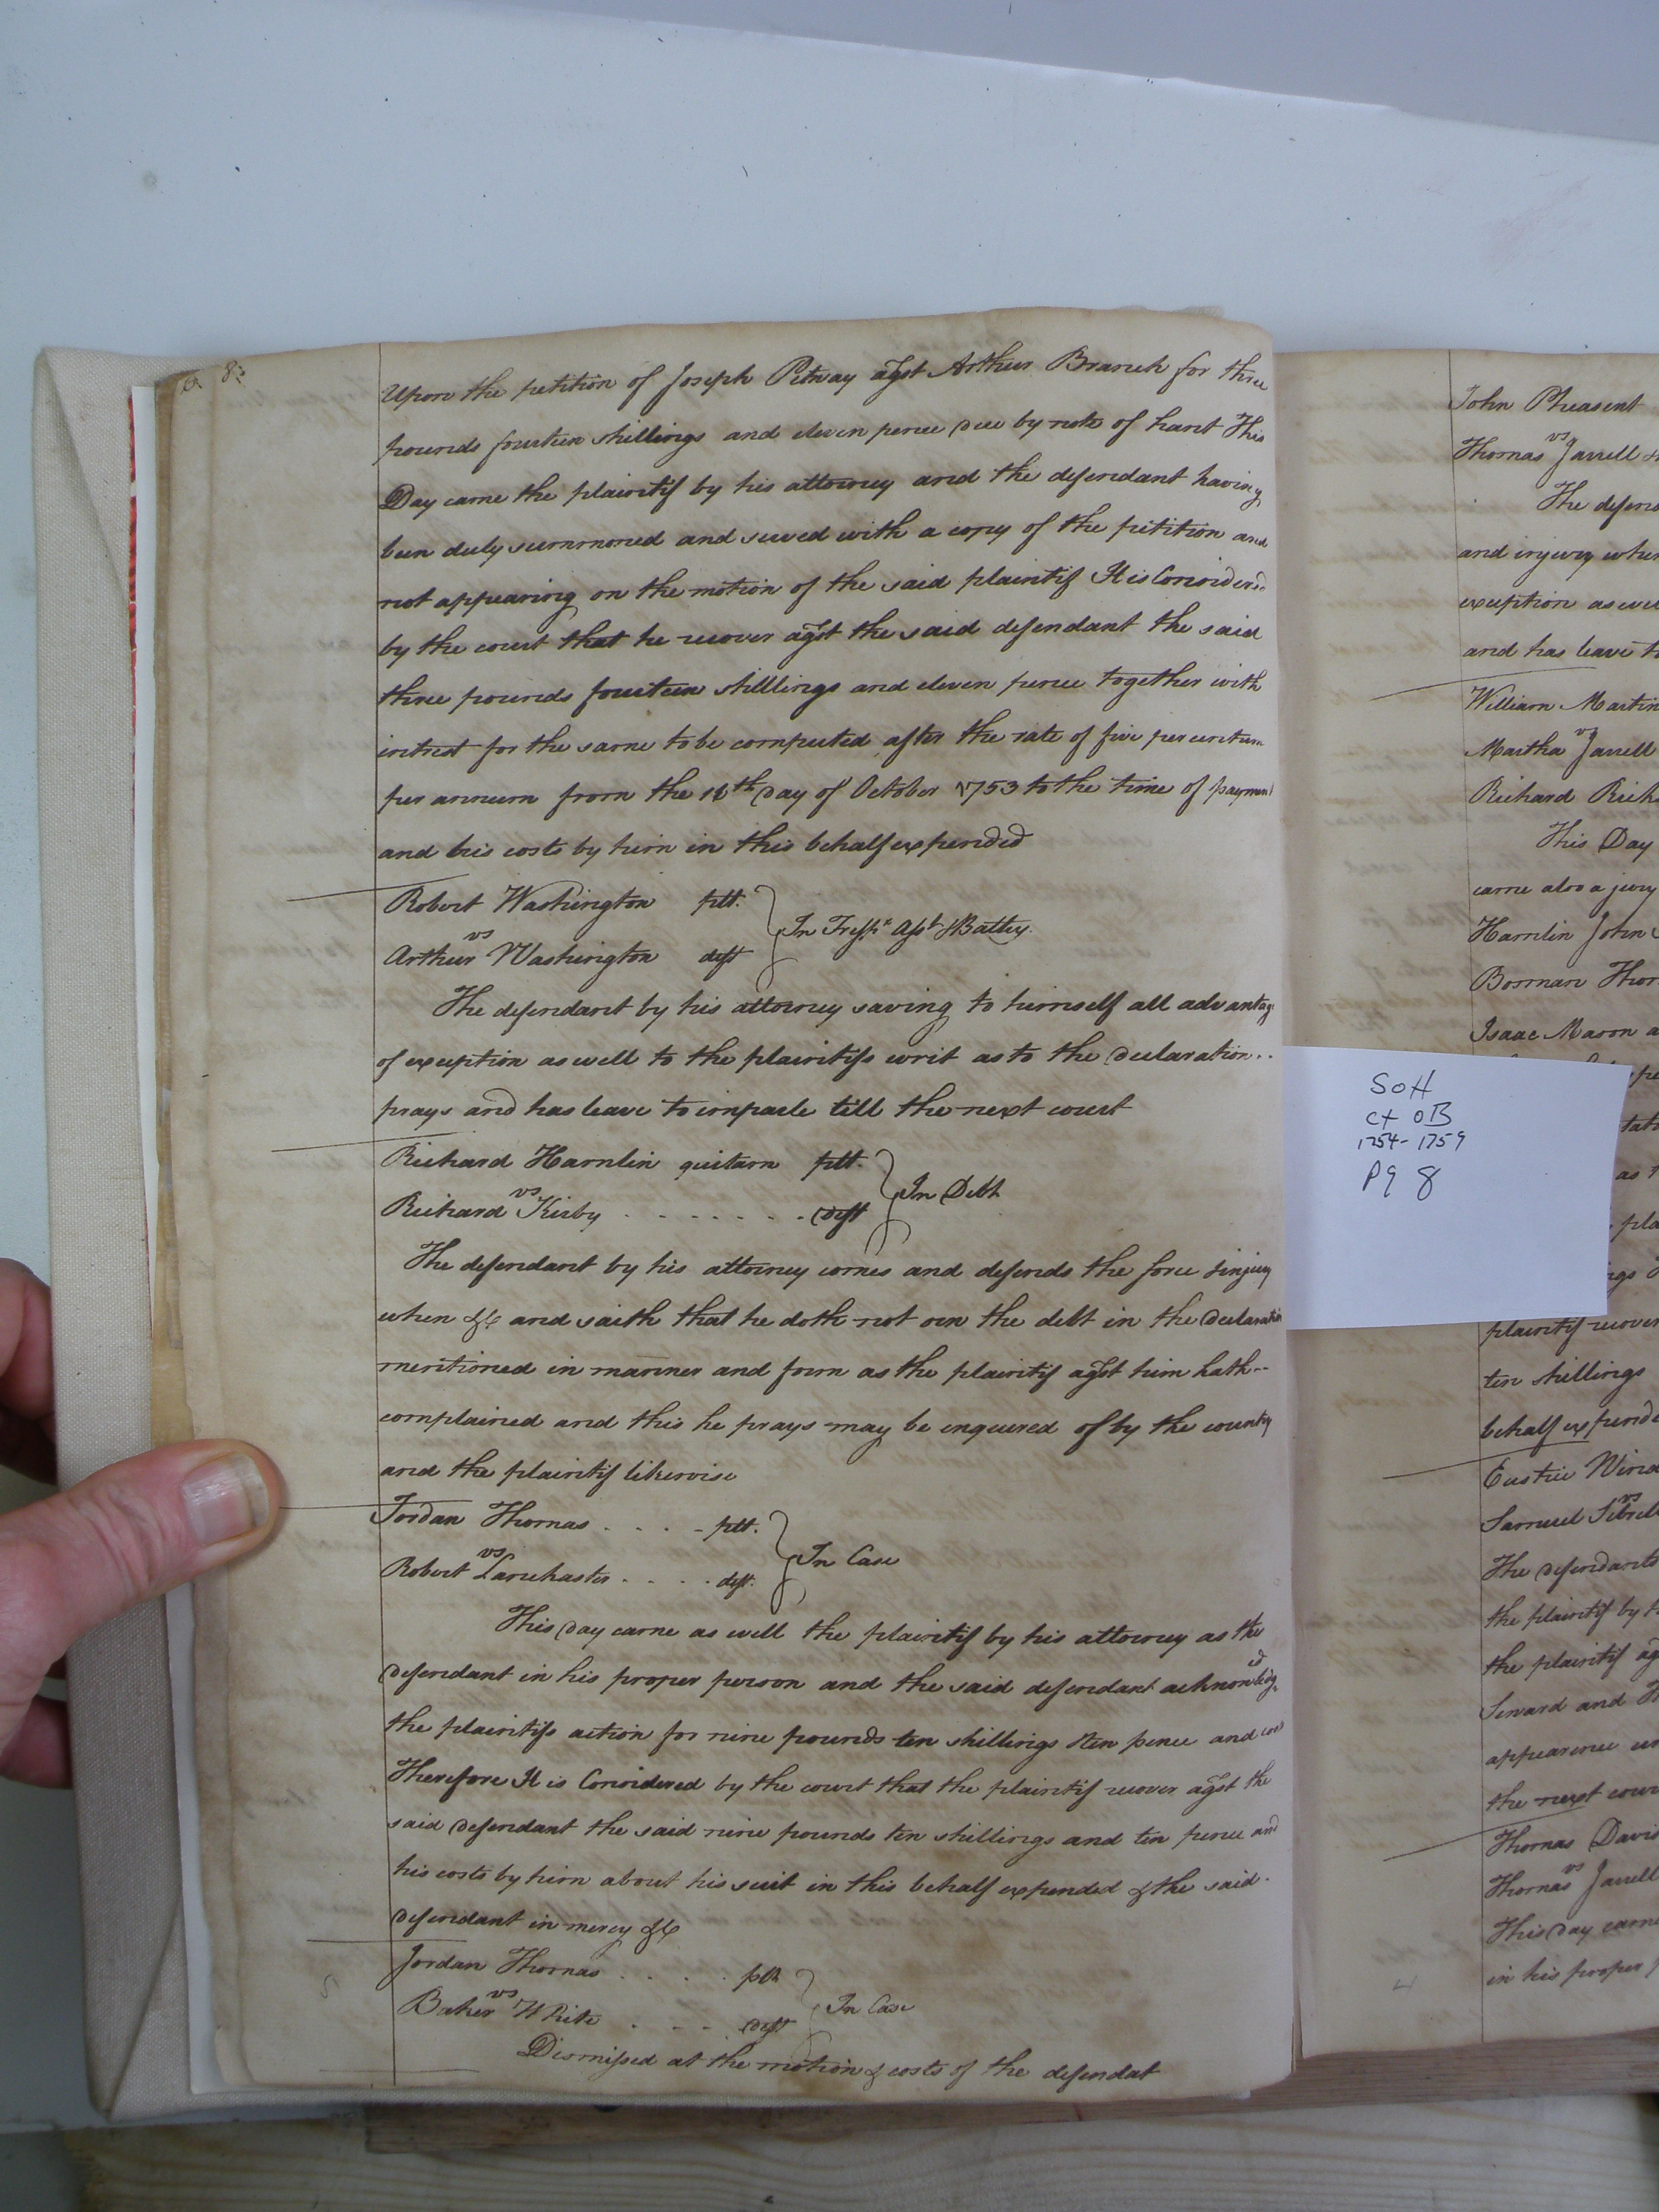 8
Upon the petition of Joseph Petway agst Arthur Branch for three
pounds fourteen shillings and eleven pence due by note of hant This
Day came the plaintif by his attorney and the defendant having
been duly summoned and served with a copy of the petition and
not appearing on the motion of the said plaintif It is Considered
by the court that he recover agst the said defendant the said
three pounds fourteen shilllings and eleven pence together with
intrest for the same to be computed after the rate of five per centum
per annum from the day of October 1753 to the time of payment
and his costs by him in this behalf expended
Robert Washington plt.
vs
In Tresps Asst & Battey.
Arthur Washington deft
The defendant by his attorney saving to himself all advantag
of exception as well to the plaintifs writ as to the declaration..
prays and has leave to imparle till the next court
Richard Hamlin quitam plt.
vs
In Debt
Richard Kirby . . . . . . . deft
The defendant by his attorney comes and defends the force & injury
when &c and saith that he doth not own the debt in the declaration
mentioned in manner and form as the plaintif agst him hath--
complained and this he prays may be enquired of by the country
and the plaintif likewise
Jordan Thomas . . . - plt.
vs
In Case
Robert Lanchaster . . . . deft.
This day came as well the plaintif by his attorney as the
defendant in his proper person and the said defendant acknowledg
ed
the plaintifs action for nine pounds ten shillings & ten pence and cos
Therefore It is Considered by the court that the plaintif recover agst the
said defendant the said nine pounds ten shillings and ten pence and
his costs by him about his suit in this behalf expended & the said.
defendant in mercy &c
Jordan Thomas . . . . plt
vs
In Case
Baker White . . - deft
Dismissed at the motion & costs of the defendat
5
John Pheasent
vs
Thomas Jarrell
The defen
and injury when
exception as we
and has leave t
William Martin
vs
Martha Jarrell
Richard Rich
This Day
came also a jury
Hamlin John
Borman Thom
Isaac Mason a
SOH
Ct OB
1754-1759
pg 8
plaintif recover
ten shillings
behalf expende
Eustice Wind
vs
Samuel Sebrel
The defendants
the plaintif by h
the plaintif ag
Seward and
appearence
the next cour
Thomas Davi
vs
Thomas Jarrell
This day came
in his proper p
4